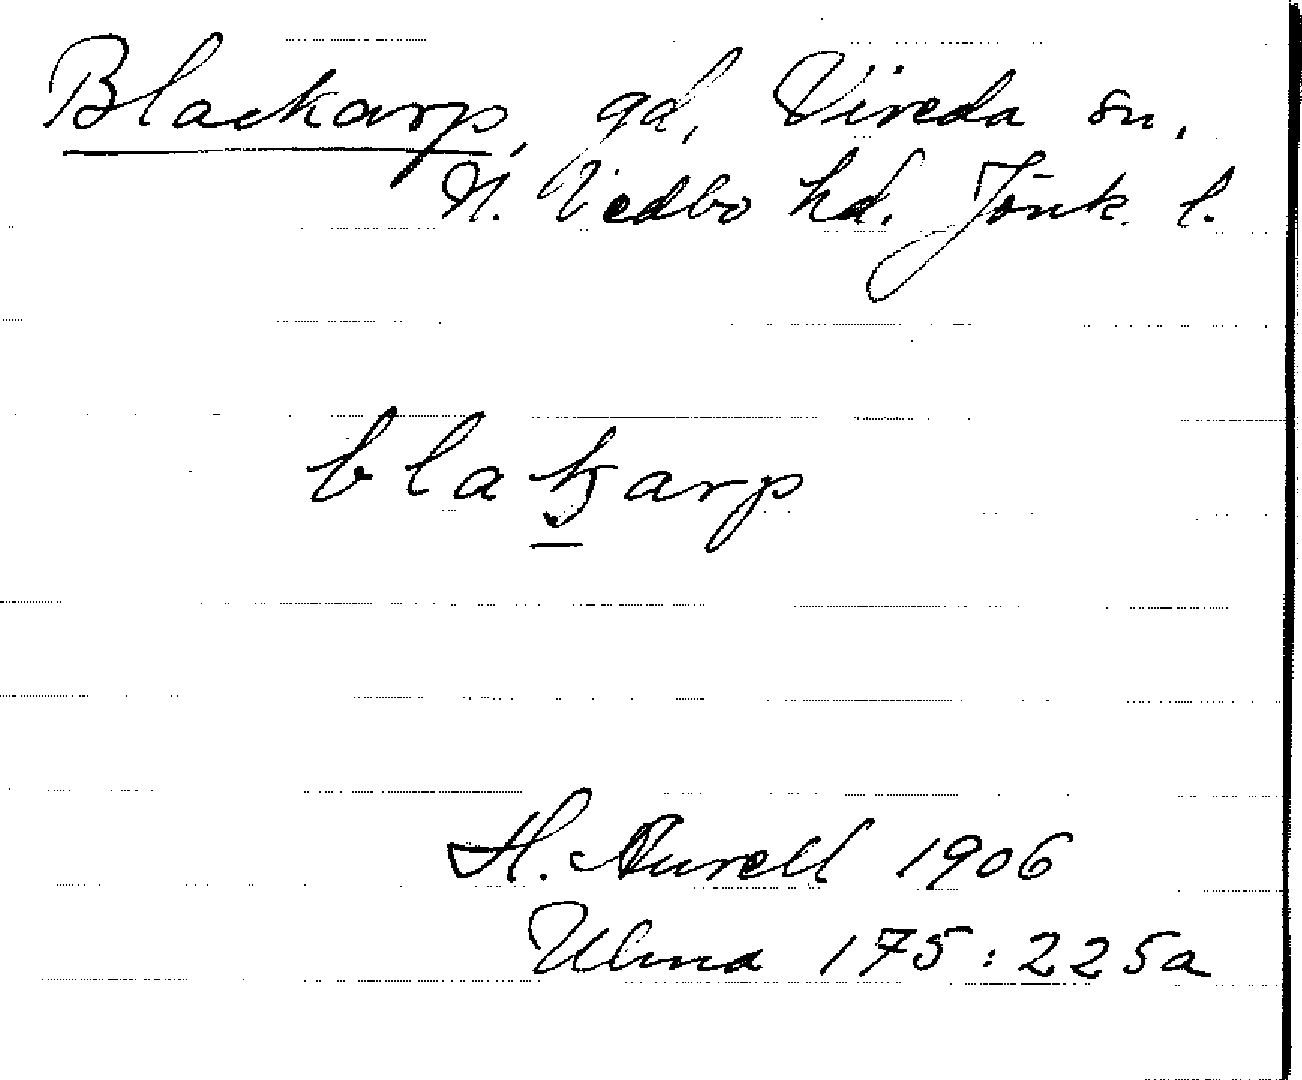 Blackarp, gd, Vireda sn.
N. Vedbo hd. Jönk. l.
blakarp
H. Aurell 1906
Ulma 175:225a